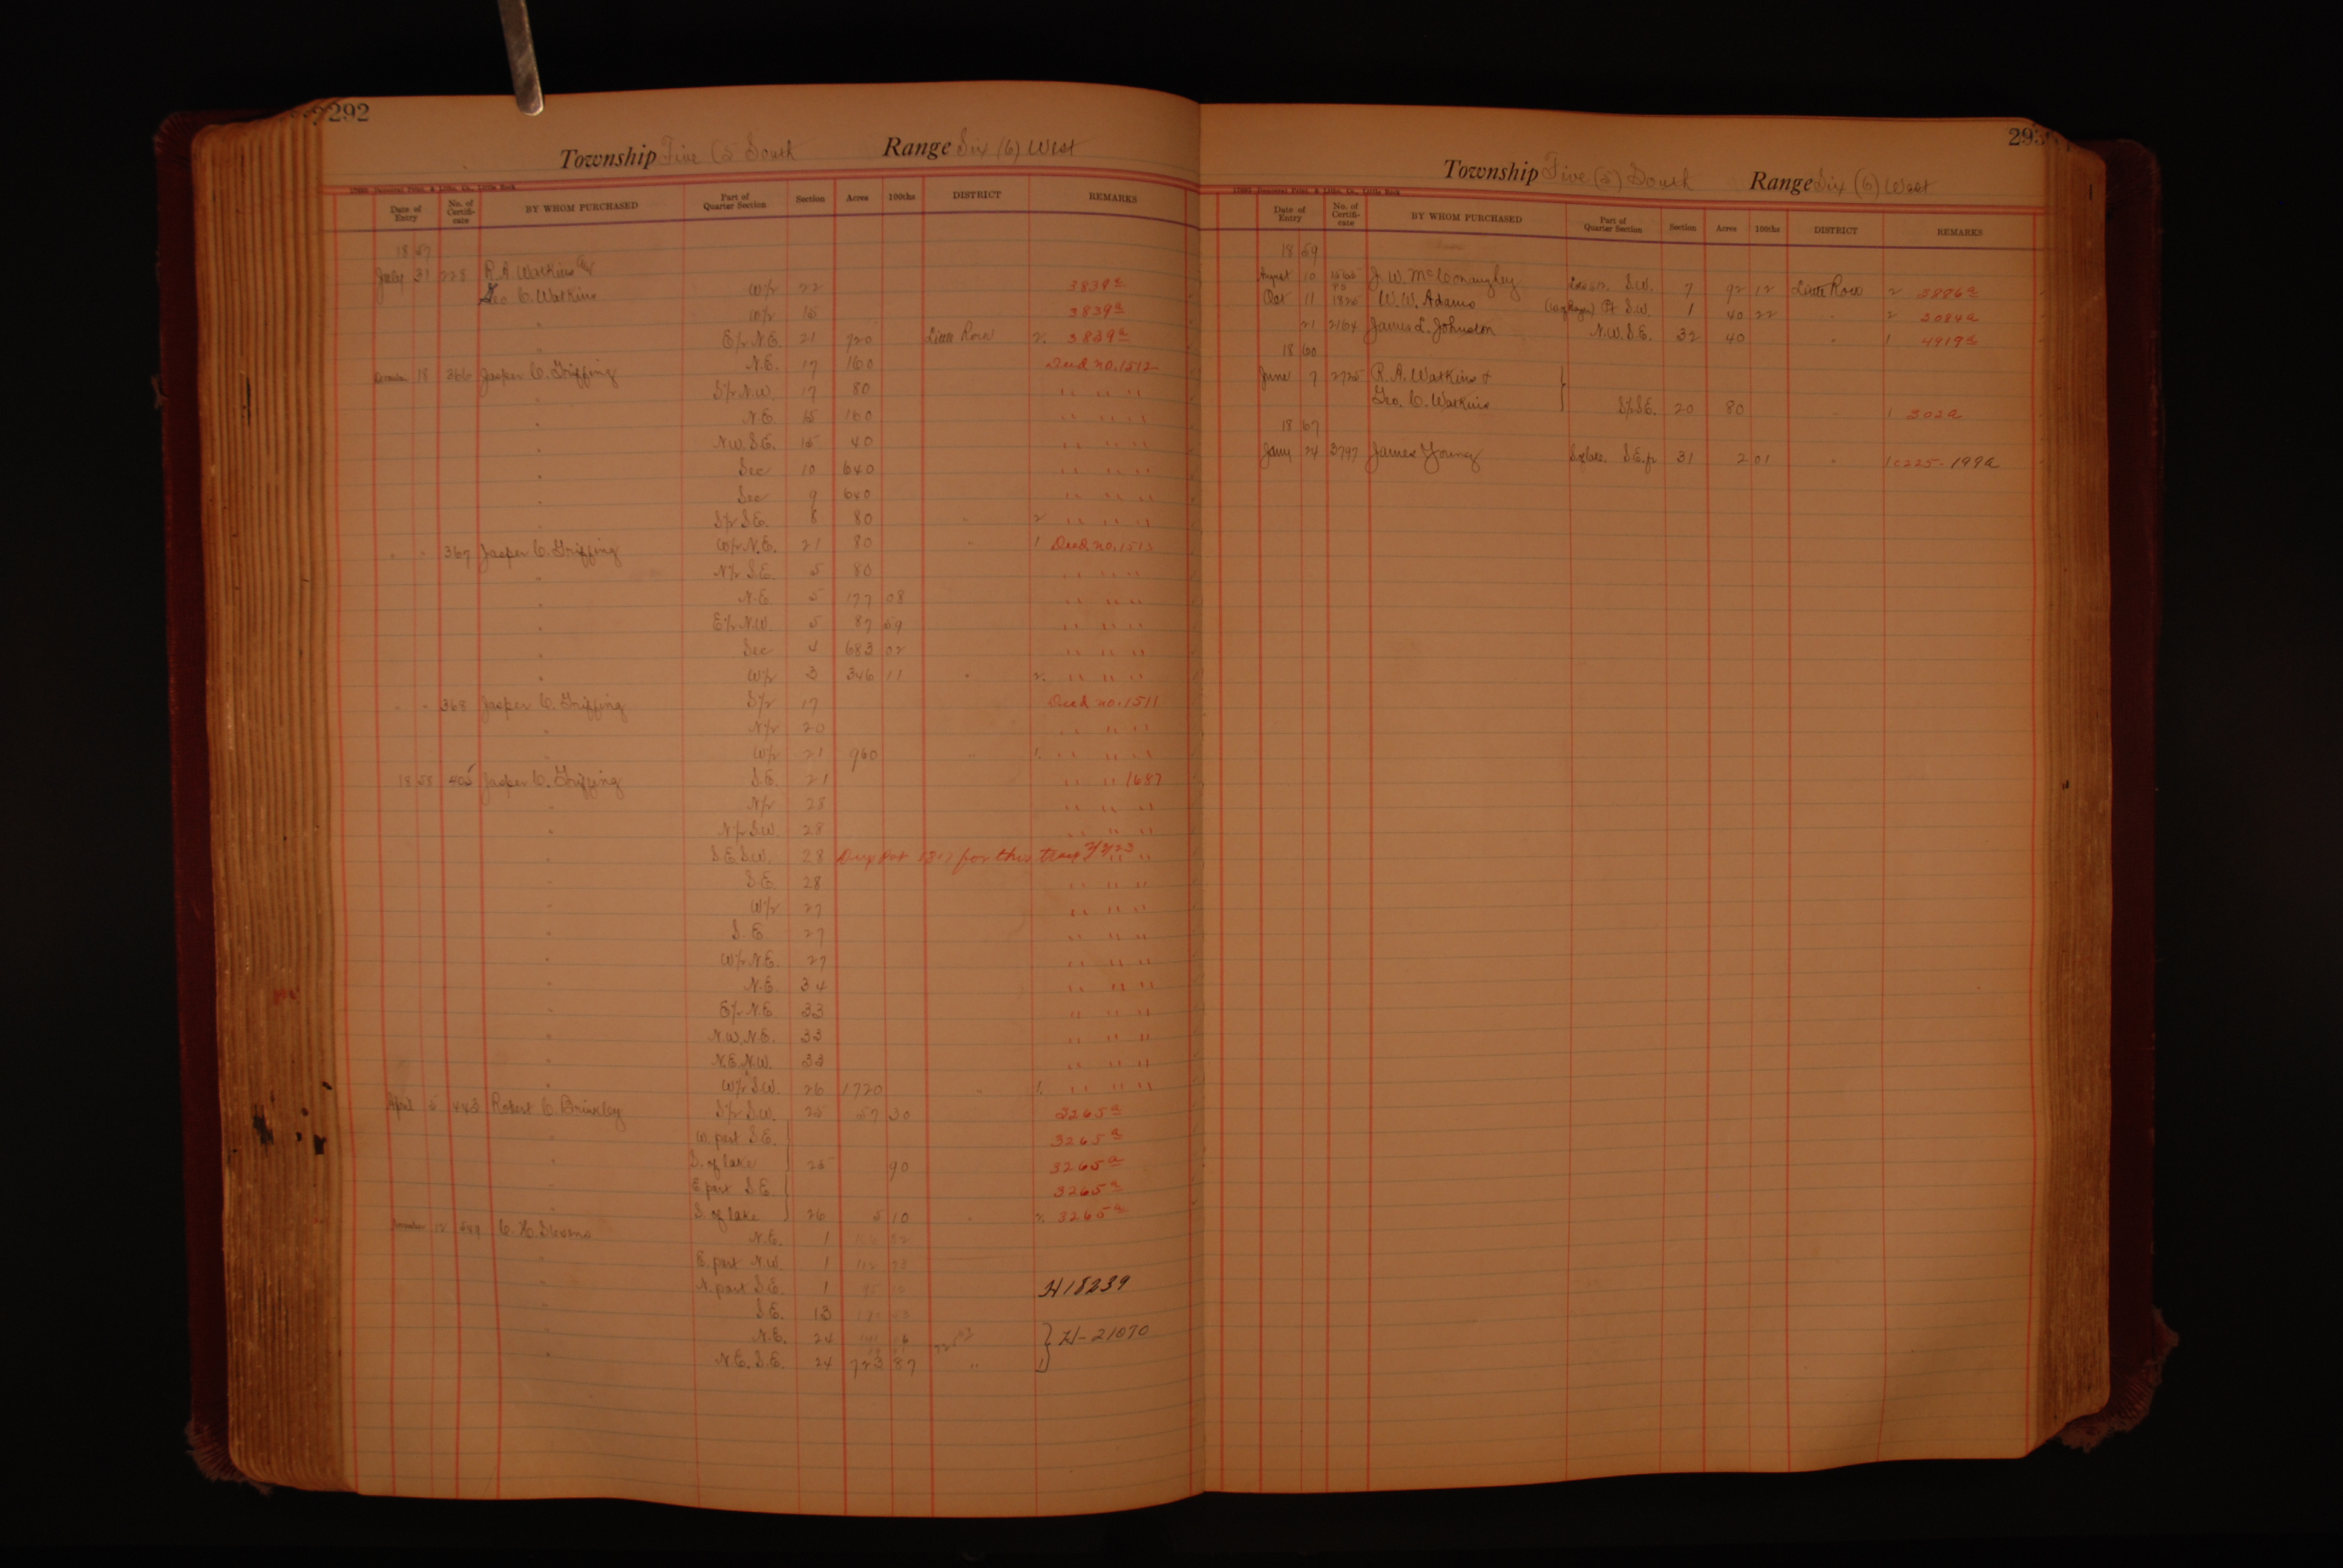 292
Township Five (5 South Range Six (6) West
Date of Entry No. of Certifi-cate BY WHOM PURCHASED Part of Quarter Section Section Acres 100ths DISTRICT REMARKS
18 57
July 31 228 R. A. Watkins &
Geo. C. Watkins W/2 22 3839a
" W/2 15 3839a
" E/2 N.E. 21 720 Little Rock 2. 3839a
18 366 Jasper C. Griffing N.E. 17 160 Deed no. 1512
" S/2 N.W. 17 80 " " "
" N.E. 15 160 " " "
" N.W. S.E. 15 40 " " "
" Sec 10 640 " " "
" Sec 9 640 " " "
" S/2 S.E. 8 80 " 2 " " "
" " 367 Jasper C. Griffing W/2 N.E. 21 80 " 1 Deed no. 1513
" N/2 S.E. 5 80 " " "
" N.E. 5 177 08 " " "
" E/2 N.W. 5 87 59 " " "
" Sec 4 683 02 " " "
" W/2 3 346 11 " 2. " " "
" " 368 Jasper C. Griffing S/2 17 Deed no. 1511
" N/2 20 " " "
" W/2 21 960 " 1. " " "
18 58 405 Jasper C. Griffing S.E. 21 " " 1687
" N/2 28 " " "
" N/2 S.W. 28 " " "
" S.E. S.W. 28 for this " "
" S.E. 28 " " "
" W/2 27 " " "
" S.E. 27 " " "
" W/2 N.E. 27 " " "
" N.E. 34 " " "
" E/2 N.E. 33 " " "
" N.W. N.E. 33 " " "
" N.E. N.W. 33 " " "
" W/2 S.W. 26 1720 " 1. " " "
April 5 443 Robert C. Brinkley S/2 S.W. 25 57 30 3265a
" W. part S.E. 3265a
" S. of lake 25 90 3265a
" E part S.E. 3265a
" S. of lake 26 5 10 " 2. 3265a
12 C. H. Stevens N.E. 1
" E. part N.W. 1
" N. part S.E. 1 H 18239
" S.E. 13
" N.E. 24 H-21070
" N.E. S.E. 24 723 87 "
293
Township Five (5) South Range Six (6) West
Date of Entry No. of Certifi-cate BY WHOM PURCHASED Part of Quarter Section Section Acres 100ths DISTRICT REMARKS
18 59
August 10 J. W. McConaughey S.W. 7 92 12 Little Rock 2 3886a
Oct 11 1825 W. W. Adams Pt S.W. 1 40 22 " 2 3084a
21 2164 James L. Johnston N.W. S.E. 32 40 " 1 4919a
18 60
June 7 2725 R. A. Watkins &
Geo. C. Watkins S/2 S.E. 20 80 " 1 302a
18 67
Jany 24 3797 James Young S of lake. S.E. fr 31 2 01 " 1 c225-199a